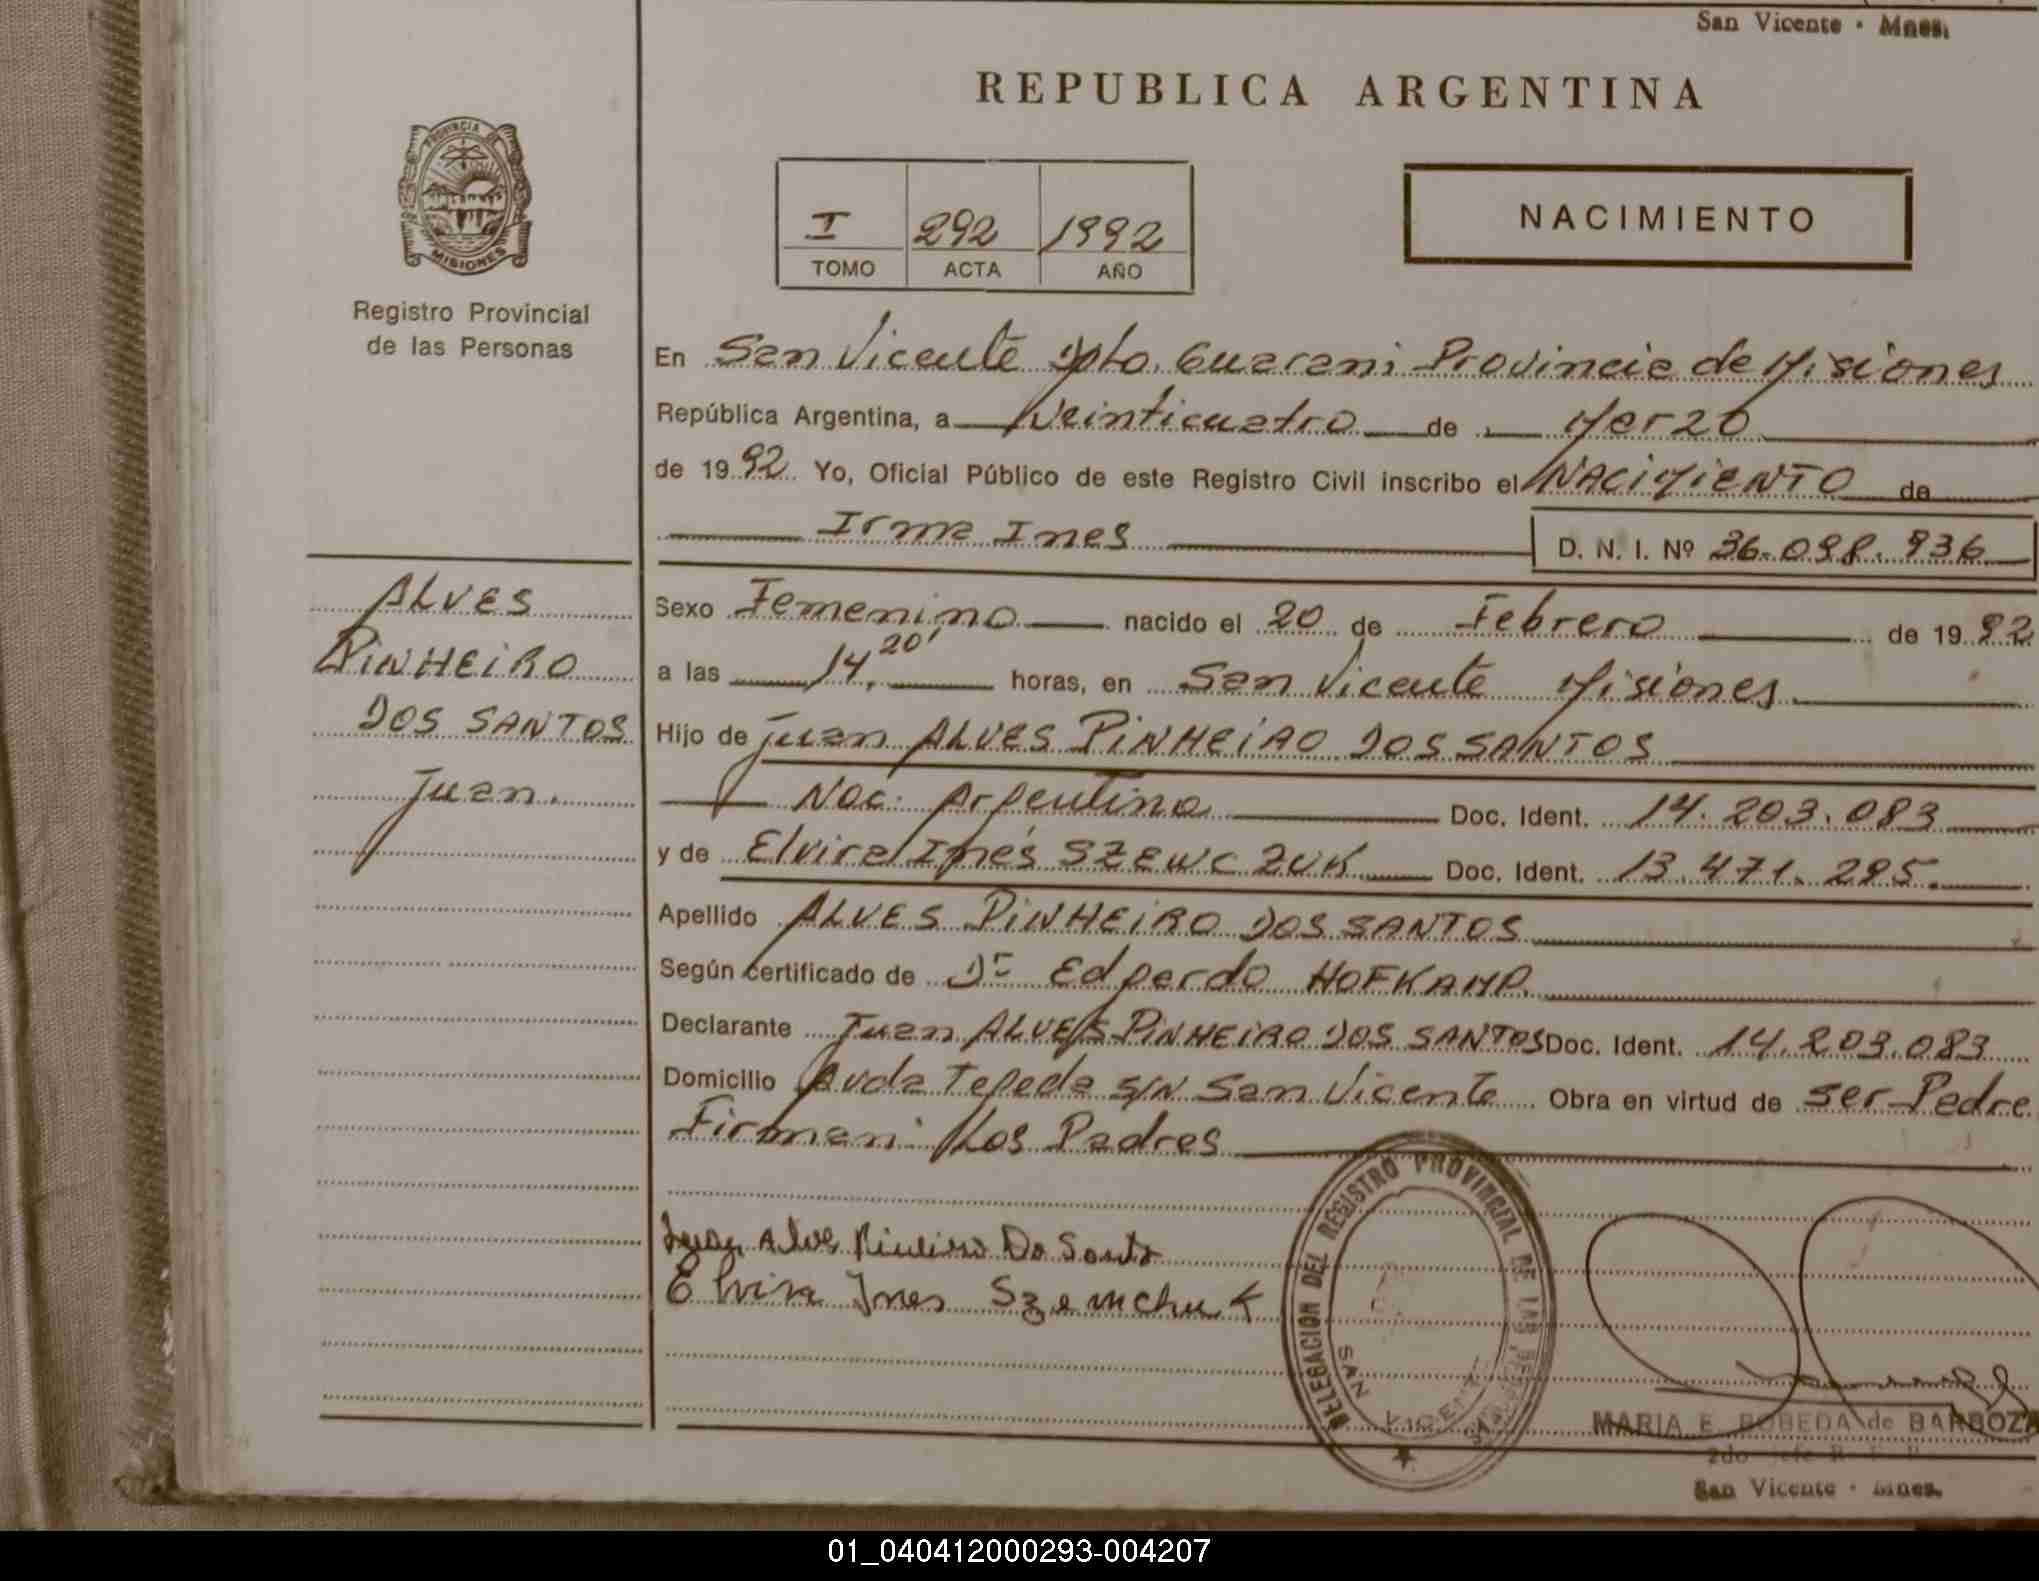 San Vicente - Mnes.
REPUBLICA ARGENTINA
PROVINCIA DE
MISIONES
Registro Provincial
de las Personas
I 292 1992
TOMO ACTA AÑO
NACIMIENTO
En San Vicente Dpto. Guarani Provincia de Misiones
República Argentina, a Veinticuatro de Marzo
de 1992. Yo, Oficial Público de este Registro Civil inscribo el NACIMIENTO de
Irma Ines D. N. I. Nº 36.098.936
ALVES
PINHEIRO
DOS SANTOS
Juan.
Sexo Femenino nacido el 20 de Febrero de 1992
a las 14,20' horas, en San Vicente Misiones
Hijo de Juan ALVES PINHEIRO DOS SANTOS
Nac. Argentina Doc. Ident. 14.203.083
y de Elvira Inés SZEWCZUK Doc. Ident. 13.471.295.
Apellido ALVES PINHEIRO DOS SANTOS
Según certificado de Dr Edgardo HOFKAMP.
Declarante Juan ALVES PINHEIRO DOS SANTOS Doc. Ident. 14.203.083
Domicilio Avda Tejeda S/N San Vicente Obra en virtud de ser Padre
Firman: Los Padres
Juan Alves Do
Elvira Ines
DELEGACION DEL REGISTRO PROVINCIAL DE LAS PERSONAS
SAN VICENTE
MARIA E. BOBEDA de BARBOZA
2do Jefe R.
San Vicente - Mnes.
01_040412000293-004207